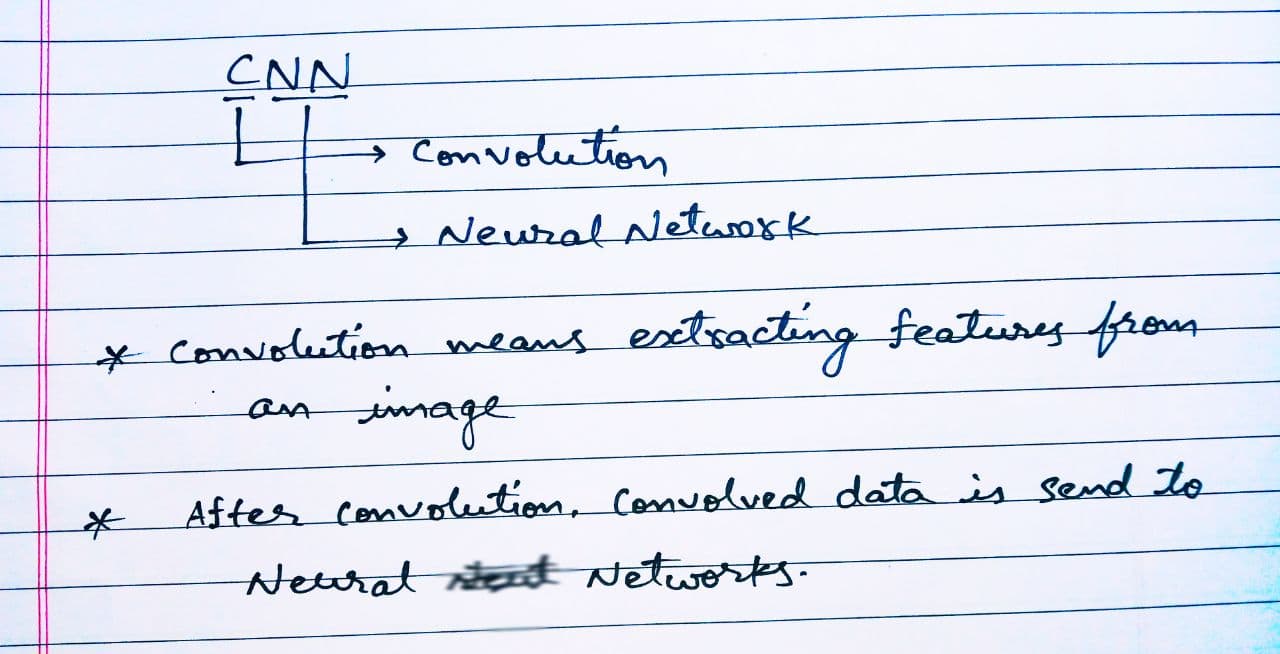 CNN
→ Convolution
→ Neural Network
* Convolution means extracting features from
an image
* After convolution, Convolved data is send to
Neural Networks.